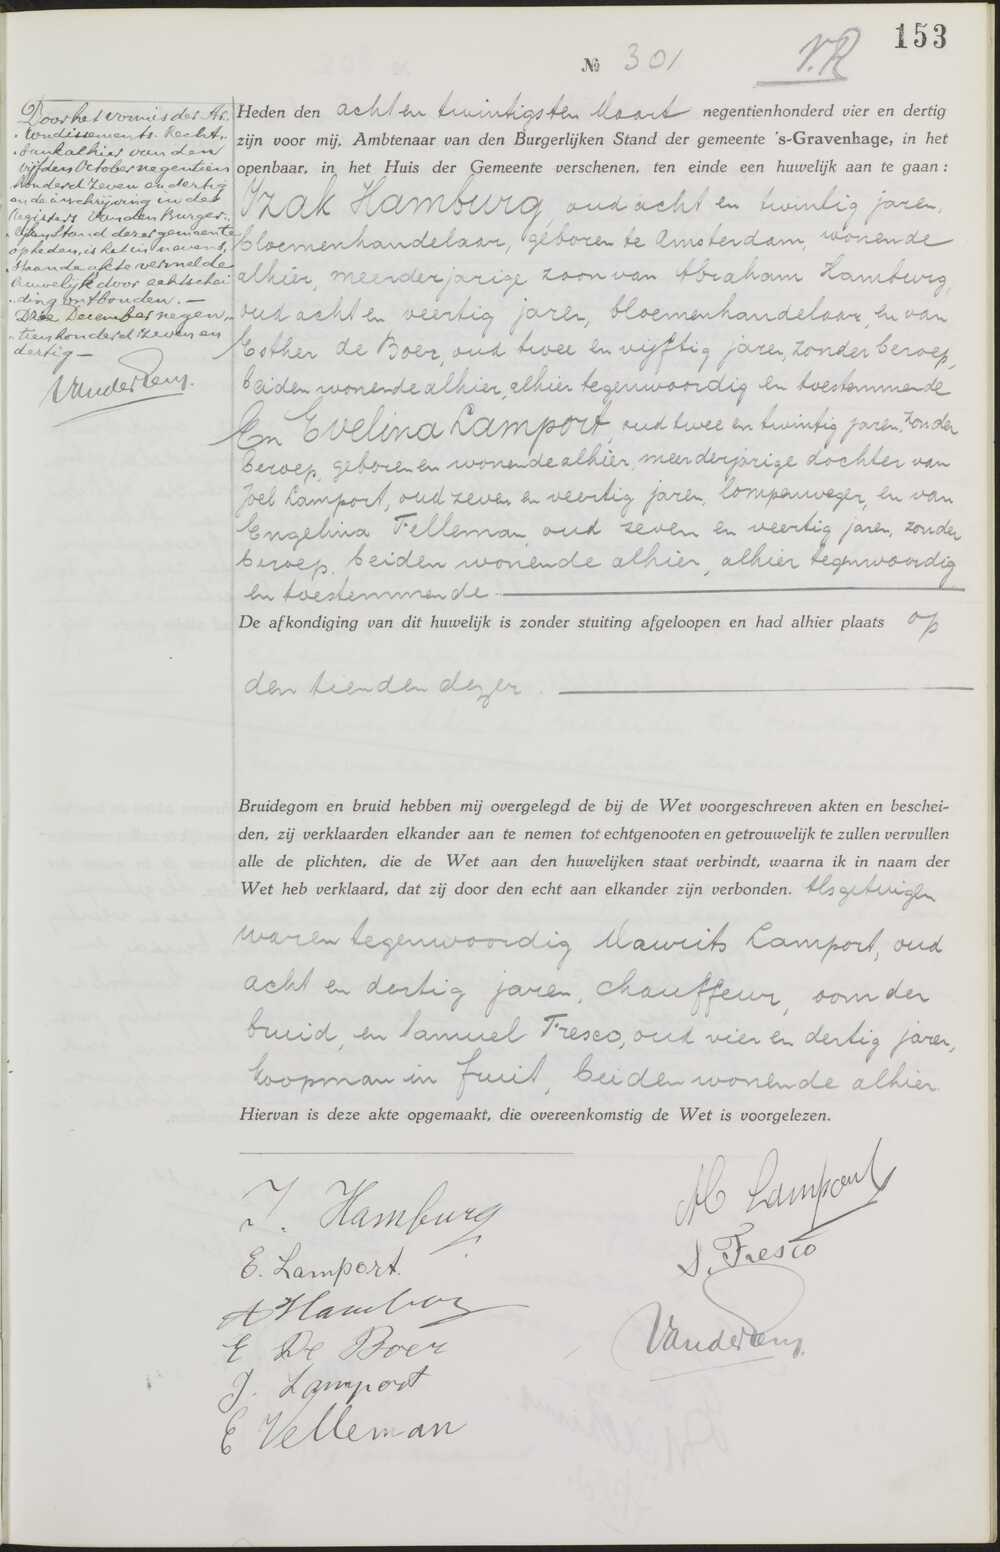 153
№ 301 V.R
Door het vonnis der Ar-
rondissements Recht-
bank alhier van den
vijfden October negentien
honderd zeven en dertig
en de inschrijving in de
Registers van den Burger-
lijken Stand dezer gemeente
op heden, is het in nevens-
staande akte vermelde
huwelijk door echtschei-
ding ontbonden. —
Drie December negen-
tienhonderd zeven en
dertig —
Heden den acht en twintigsten Maart negentienhonderd vier en dertig
zijn voor mij, Ambtenaar van den Burgerlijken Stand der gemeente 's-Gravenhage, in het
openbaar, in het Huis der Gemeente verschenen, ten einde een huwelijk aan te gaan:
Izak Hamburg, oud acht en twintig jaren,
bloemenhandelaar, geboren te Amsterdam, wonende
alhier, meerderjarige zoon van Abraham Hamburg,
oud acht en veertig jaren, bloemenhandelaar, en van
Esther de Boer, oud twee en vijftig jaren, zonder beroep,
beiden wonende alhier, alhier tegenwoordig en toestemmende
En Evelina Lamport, oud twee en twintig jaren, zonder
beroep, geboren en wonende alhier, meerderjarige dochter van
Joel Lamport, oud zeven en veertig jaren, lompenweger, en van
Engelina Felleman, oud zeven en veertig jaren, zonder
beroep, beiden wonende alhier, alhier tegenwoordig
en toestemmende
De afkondiging van dit huwelijk is zonder stuiting afgeloopen en had alhier plaats op
den tienden dezer.
Bruidegom en bruid hebben mij overgelegd de bij de Wet voorgeschreven akten en beschei-
den, zij verklaarden elkander aan te nemen tot echtgenooten en getrouwelijk te zullen vervullen
alle de plichten, die de Wet aan den huwelijken staat verbindt, waarna ik in naam der
Wet heb verklaard, dat zij door den echt aan elkander zijn verbonden. Als getuigen
waren tegenwoordig Maurits Lamport, oud
acht en dertig jaren, chauffeur, oom der
bruid, en Samuel Fresco, oud vier en dertig jaren,
koopman in fruit, beiden wonende alhier.
Hiervan is deze akte opgemaakt, die overeenkomstig de Wet is voorgelezen.
I. Hamburg
M Lamport
E. Lamport.
S. Fresco
A Hamburg
E De Boer
J. Lamport
E Velleman